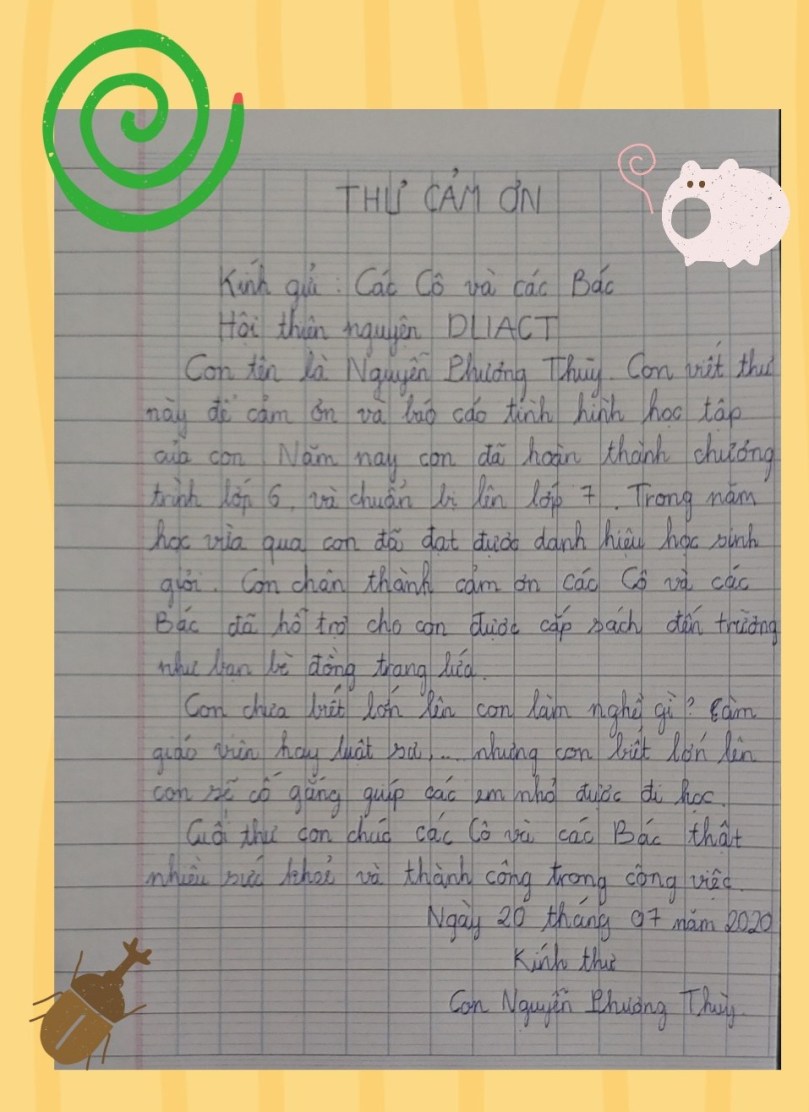 THƯ CẢM ƠN
Kính gửi : Các Cô và các Bác
Hội thiện nguyện DLIACT
Con tên là Nguyễn Phương Thùy. Con viết thư
này để cảm ơn và báo cáo tình hình học tập
của con. Năm nay con đã hoàn thành chương
trình lớp 6, và chuẩn bị lên lớp 7. Trong năm
học vừa qua con đã đạt được danh hiệu học sinh
giỏi. Con chân thành cảm ơn các Cô và các
Bác đã hỗ trợ cho con được cắp sách đến trường
như bạn bè đồng trang lứa.
Con chưa biết lớn lên con làm nghề gì? Làm
giáo viên hay luật sư,... nhưng con biết lớn lên
con sẽ cố gắng giúp các em nhỏ được đi học.
Cuối thư con chúc các Cô và các Bác thật
nhiều sức khoẻ và thành công trong công việc.
Ngày 20 tháng 07 năm 2020
Kính thư
Con Nguyễn Phương Thùy.